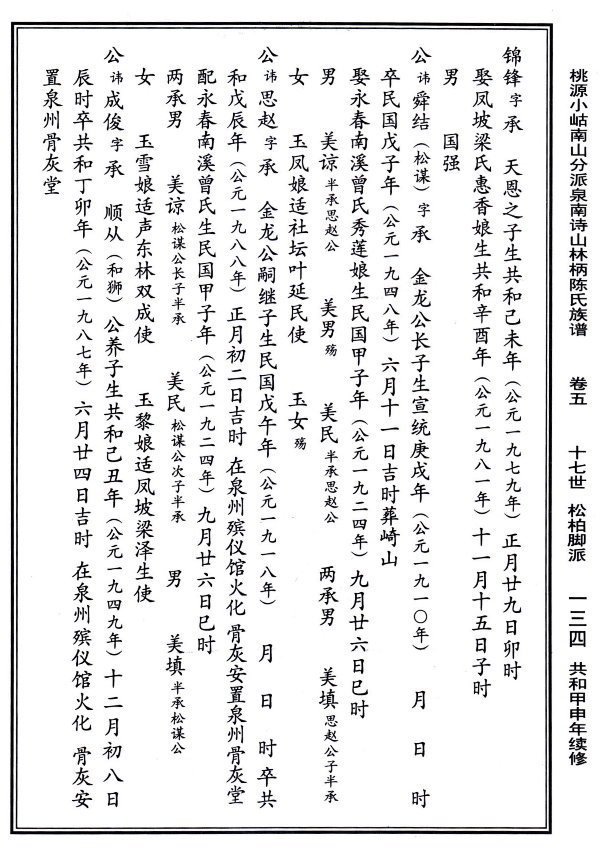 桃源小岵南山分派泉南诗山林柄陈氏族谱 卷五 十七世 松柏脚派 一三四 共和甲申年续修
锦锋字承 天恩之子生共和己未年（公元一九七九年）正月廿九日卯时
娶凤坡梁氏惠香娘生共和辛酉年（公元一九八一年）十一月十五日子时
男 国强
公讳舜结（松谋）字承 金龙公长子生宣统庚戌年（公元一九一〇年） 月 日 时
卒民国戊子年（公元一九四八年）六月十一日吉时葬崎山
娶永春南溪曾氏秀莲娘生民国甲子年（公元一九二四年）九月廿六日巳时
男 美谅半承思赵公 美男殇 美民半承思赵公 两承男 美填思赵公子半承
女 玉凤娘适社坛叶延民使 玉女殇
公讳思赵字承 金龙公嗣继子生民国戊午年（公元一九一八年） 月 日 时卒共
和戊辰年（公元一九八八年）正月初二日吉时 在泉州殡仪馆火化 骨灰安置泉州骨灰堂
配永春南溪曾氏生民国甲子年（公元一九二四年）九月廿六日巳时
两承男 美谅松谋公长子半承 美民松谋公次子半承 男 美填半承松谋公
女 玉雪娘适声东林双成使 玉黎娘适凤坡梁泽生使
公讳成俊字承 顺从（和狮）公养子生共和己丑年（公元一九四九年）十二月初八日
辰时卒共和丁卯年（公元一九八七年）六月廿四日吉时 在泉州殡仪馆火化 骨灰安
置泉州骨灰堂